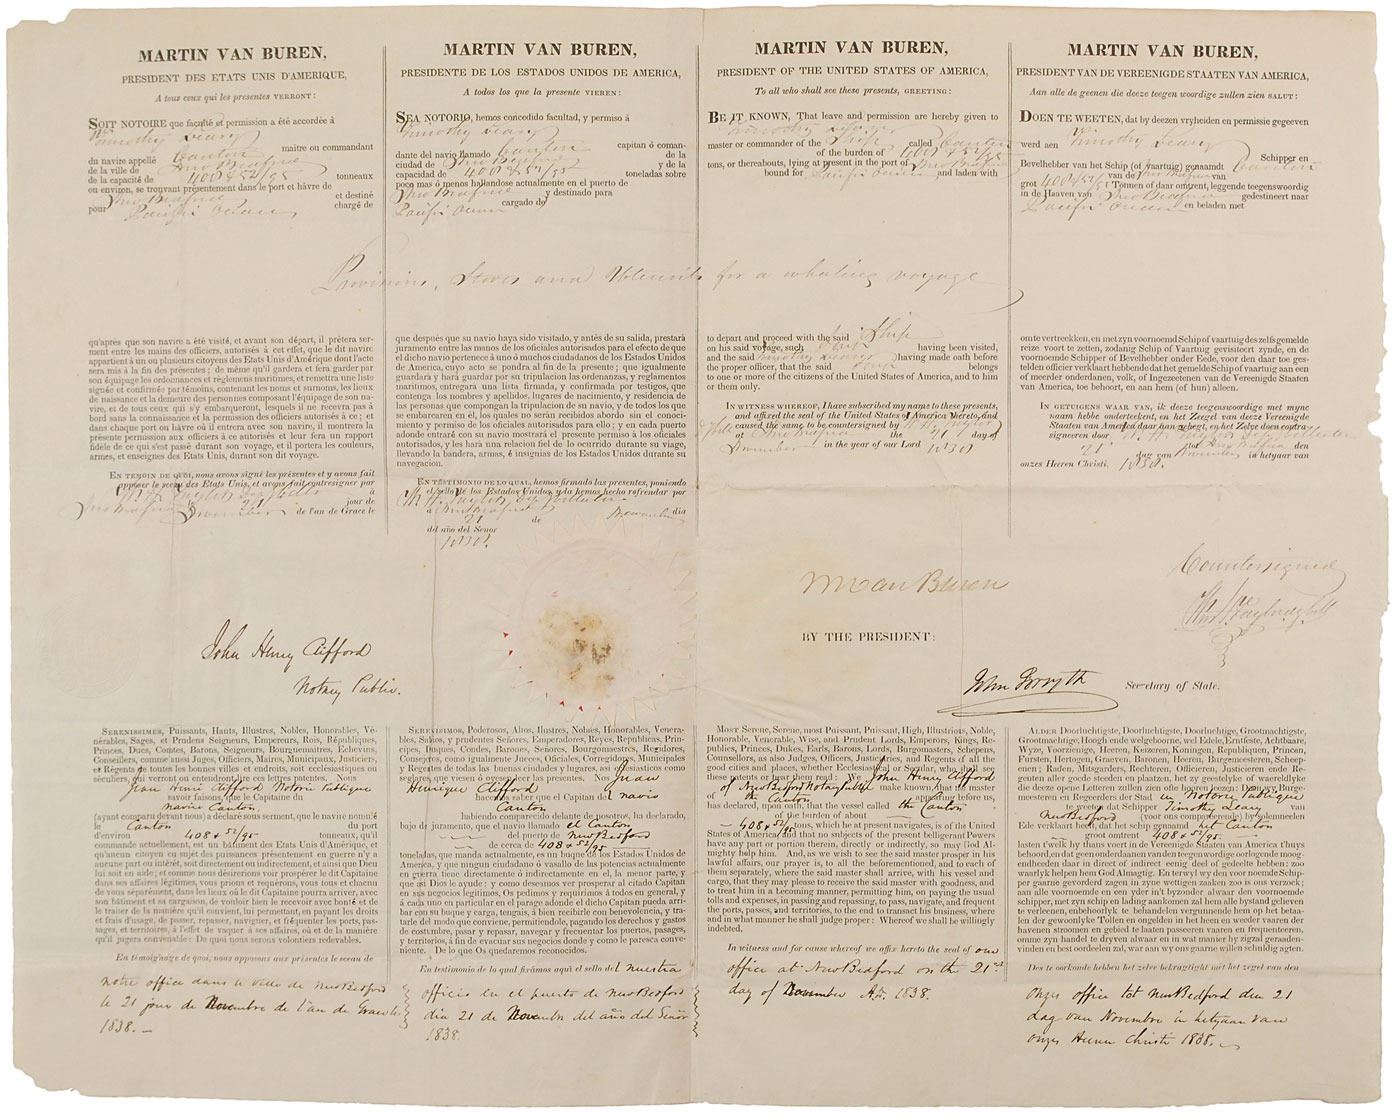 MARTIN VAN BUREN,
PRESIDENT DES ETATS UNIS D'AMERIQUE,
A tous ceux qui les presentes VERRONT:
SOIT NOTOIRE que faculté et permission a été accordée à
Timothy Leary
maitre ou commandant
du navire appellé Canton
de la ville de New Bedford
de la capacité de 408 & 52/95 tonneaux
ou environ, se trouvant présentement dans le port et hâvre de
New Bedford et destiné
pour Pacific Ocean, chargé de
MARTIN VAN BUREN,
PRESIDENTE DE LOS ESTADOS UNIDOS DE AMERICA,
A todos los que la presente VIEREN:
SEA NOTORIO, hemos concedido facultad, y permiso á
Timothy Leary
capitan ó coman-
dante del navio llamado Canton de la
ciudad de New Bedford y de la
capacidad de 408 & 52/95 toneladas sobre
poco mas ó menos hallandose actualmente en el puerto de
New Bedford y destinado para
Pacific Ocean cargado de
MARTIN VAN BUREN,
PRESIDENT OF THE UNITED STATES OF AMERICA,
To all who shall see these presents, GREETING:
BE IT KNOWN, That leave and permission are hereby given to
Timothy Leary
master or commander of the Ship called Canton
of the burden of 408 & 52/95
tons, or thereabouts, lying at present in the port of New Bedford
bound for Pacific Ocean and laden with
MARTIN VAN BUREN,
PRESIDENT VAN DE VEREENIGDE STAATEN VAN AMERICA,
Aan alle de geenen die deeze teegen woordige zullen zien SALUT:
DOEN TE WEETEN, dat by deezen vryheiden en permissie gegeeven
werd aen Timothy Leary
Schipper en
Bevelhebber van het Schip (of vaartuig) genaamdt Canton
van de New Bedford van
groot 408 & 52/95 Tonnen of daar omtrent, leggende teegenswoordig
in de Haaven van New Bedford gedestineert naar
Pacific Ocean en beladen met
Provisions, Stores and Utensils for a whaling voyage
qu'après que son navire a été visité, et avant son départ, il prêtera ser-
ment entre les mains des officiers, autorisés à cet effet, que le dit navire
appartient à un ou plusieurs citoyens des Etats Unis d'Amérique dont l'acte
sera mis à la fin des présentes; de même qu'il gardera et fera garder par
son équipage les ordonnances et réglemens maritimes, et remettra une liste
signée et confirmée par témoins, contenant les noms et surnoms, les lieux
de naissance et la demeure des personnes composant l'équipage de son na-
vire, et de tous ceux qui s'y embarqueront, lesquels il ne recevra pas à
bord sans la connaissance et la permission des officiers autorisés à ce; et
dans chaque port ou hâvre où il entrera avec son navire, il montrera la
présente permission aux officiers à ce autorisés et leur fera un rapport
fidèle de ce qui s'est passé durant son voyage, et il portera les couleurs,
armes, et enseignes des Etats Unis, durant son dit voyage.
EN TEMOIN DE QUOI, nous avons signé les présentes et y avons fait
apposer le sceau des Etats Unis, et avons fait contresigner par
à
New Bedford 21 jour de
November de l'an de Grace le
que después que su navio haya sido visitado, y antés de su salida, prestará
juramento entre las manos de los oficiales autorizados para el efecto de que
el dicho navio pertenece à uno ó muchos ciudadanos de los Estados Unidos
de America, cuyo acto se pondra al fin de la presente; que igualmente
guardará y hará guardar por su tripulacion las ordenanzas, y reglamentos
maritimos, y entregara una lista firmada, y confirmada por testigos, que
contenga los nombres y apellidos, lugares de nacimiento, y residencia de
las personas que compongan la tripulacion de su navio, y de todos los que
se embarcaren en él, los quales no serán recibidos abordo sin el conoci-
miento y permiso de los oficiales autorisados para ello; y en cada puerto
adonde entrará con su navio mostrará el presente permiso á los oficiales
autorisados, y les hará una relacion fiel de lo ocurrido durante su viage,
llevando la bandera, armas, é insignias de los Estados Unidos durante su
navegacion.
EN TESTIMONIO DE LO QUAL, hemos firmado las presentes, poniendo
el sello de los Estados Unidos, y la hemos hecho refrendar por
á New Bedford dia
21 de November
del año del Senor
1838.
to depart and proceed with the said Ship
on his said voyage, such Ship having been visited,
and the said Timothy Leary having made oath before
the proper officer, that the said Ship belongs
to one or more of the citizens of the United States of America, and to him
or them only.
IN WITNESS WHEREOF, I have subscribed my name to these presents,
and affixed the seal of the United States of America thereto, and
caused the same to be countersigned by
at New Bedford the 21 day of
November in the year of our Lord 1838
omte vertrekken, en met zyn voornoemd Schip of Vaartuig des zelfs gemelde
reize voort te zetten, zodanig Schip of Vaartuig gevisiteert zynde, en de
voornoemde Schipper of Bevelhebber onder Eede, voor den daar toe ges-
telden officier verklaart hebbende dat het gemelde Schip of vaartuig aan een
of meerder onderdanen, volk, of Ingezeetenen van de Vereenigde Staaten
van America, toe behoort, en aan hem (of hun) alleen.
IN GETUIGENS WAAR VAN, ik deeze teegenswoordige met myne
naam hebbe onderteekent, en het Zeegel van deeze Vereenigde
Staaten van America daar aan gehegt, en het Zelve doen contra
signeeren door
21 tot New Bedford den
dag van November in het yaar van
onzes Heeren Christi, 1838.
M Van Buren
BY THE PRESIDENT:
John Forsyth Secretary of State.
Countersigned
John Henry Clifford
Notary Public.
SERENISSIMES, Puissants, Hauts, Illustres, Nobles, Honorables, Vé-
nérables, Sages, et Prudens Seigneurs, Empereurs, Rois, Républiques,
Princes, Ducs, Comtes, Barons, Seigneurs, Bourguemaitres, Echevins,
Conseillers, comme aussi Juges, Officiers, Maires, Municipaux, Justiciers,
et Régents de toutes les bonnes villes et endroits, soit ecclésiastiques ou
séculiers, qui verront ou entendront lire ces lettres patentes. Nous
Jean Henri Clifford Notarie Publique
savoir faisons, que le Capitaine du
navire Canton,
(ayant comparu devant nous) a déclaré sous serment, que le navire nommé
le Canton du port
d'environ 408 & 52/95 tonneaux, qu'il
commande actuellement, est un bâtiment des Etats Unis d'Amérique, et
qu'aucun citoyen ou sujet des puissances présentement en guerre n'y a
aucune part ou intérêt, soit directement ou indirectement, et ainsi que Dieu
lui soit en aide; et comme nous désirerions voir prospérer le dit Capitaine
dans ses affaires légitimes, vous prions et requérons, vous tous et chacun
de vous séparément, dans tous lieux où le dit Capitaine pourra arriver, avec
son bâtiment et sa cargaison, de vouloir bien le recevoir avec bonté et de
le traiter de la manière qu'il convient, lui permettant, en payant les droits
et frais d'usage, de passer, repasser, navigier, et fréquenter les ports, pas-
sages, et territoires, à l'effet de vaquer à ses affaires, où et de la manière
qu'il jugera convenable: De quoi nous serons volontiers redevables.
En témoignage de quoi, nous apposons aux présentes le sceau de
notre office dans le ville de New Bedford
le 21 jour de Novembre de l'an de Grace le
1838. —
SERENISIMOS, Poderosos, Altos, Ilustres, Nobles, Honorables, Venera-
bles, Sabios, y prudentes Señores, Emperadores, Reyes, Republicas, Prin-
cipes, Duques, Condes, Barones, Señores, Bourgomaestres, Regidores,
Consejeros, como igualmente Jueces, Oficiales, Corregidores, Municipales
y Regentes de todas las buenas ciudades y lugares, así eclesiasticos como
seglares, que viesen ó oyesen leer las presentes. Nos Juan
Henrique Clifford
hacemos saber que el Capitan del navio
Canton
habiendo comparecido delante de nosotros, ha declarado,
bajo de juramento, que el navio llamado el Canton
del puerto de New Bedford
de cerca de 408 & 52/95
toneladas, que manda actualmente, es un buque de los Estados Unidos de
America, y que ningun ciudadano ó vasallo de las potencias actualmente
en guerra tiene directamente ó indirectamente en el, la menor parte, y
que asi Dios le ayude; y como deseamos ver prosperar al citado Capitan
en sus negocios legitimos, Os pedimos y requirimos á todos en general, y
á cada uno en particular en el parage adonde el dicho Capitan pueda arri-
bar con su buque y carga, tengais, á bien recibirle con benevolencia, y tra-
tarle del modo que conviene, permitiendole, pagando los derechos y gastos
de costumbre, pasar y repasar, navegar y frecuentar los puertos, pasages,
y territorios, á fin de evacuar sus negocios donde y como le paresca conve-
niente. De lo que Os quedaremos reconocidos.
En testimonio de lo qual fixámos aquí el sello del nuestra
officio en el puerto de New Bedford
dia 21 de Novembr del año del Señor
1838.
MOST SERENE, Serene, most Puissant, Puissant, High, Illustrious, Noble,
Honorable, Venerable, Wise, and Prudent Lords, Emperors, Kings, Re-
publics, Princes, Dukes, Earls, Barons, Lords, Burgomasters, Schepens,
Counsellors, as also Judges, Officers, Justiciaries, and Regents of all the
good cities and places, whether Ecclesiastical or Secular, who shall see
these patents or hear them read: We John Henry Clifford
of New Bedford Notary Public make known, that the master
of the Canton appearing before us,
has declared, upon oath, that the vessel called the Canton
of the burden of about
408 & 52/95 tons, which he at present navigates, is of the United
States of America, and that no subjects of the present belligerant Powers
have any part or portion therein, directly or indirectly, so may God Al-
mighty help him. And, as we wish to see the said master prosper in his
lawful affairs, our prayer is, to all the beforementioned, and to each of
them separately, where the said master shall arrive, with his vessel and
cargo, that they may please to receive the said master with goodness, and
to treat him in a becoming manner, permitting him, on paying the usual
tolls and expenses, in passing and repassing, to pass, navigate, and frequent
the ports, passes, and territories, to the end to transact his business, where
and in what manner he shall judge proper: Whereof we shall be willingly
indebted.
In witness and for cause whereof we affix hereto the seal of our
office at New Bedford on the 21st
day of November A.D. 1838.
ALDER Doorluchtigste, Doorluchtigste, Doorluchtige, Grootmachtigste,
Grootmachtige, Hoogh ende welgeboorne, wel Edele, Ernfeste, Achtbaare,
Wyze, Voorzienige, Heeren, Keizeren, Koningen, Republiquen, Princen,
Fursten, Hertogen, Graeven, Baronen, Heeren, Burgemeesteren, Schee-
penen; Raden, Mitsgarders, Rechteren, Officieren, Justicieren ende Re-
genten aller goede steeden en plaatzen, het zy geestelyke of waereldlyke
die deeze opene Letteren zullen zien ofte hooren leezen: Doen wy, Burge-
meesteren en Regeerders der Stad en Notaris publique
te weeten dat Schipper Timothy Leary van
New Bedford (voor ons compareerende) by solemneelen
Ede verklaart heeft, dat het schip genaamd het Canton
groot omtrent 408 & 52/95
lasten t'welk hy thans voert in de Vereenigde Staaten van America t'huys
behoord, en dat geen onderdanen van de teegenwoordige oorlogende moog-
entheeden in direct of indirect eenig deel of gedeelte hebben: zoo
waarlyk helpen hem God Almagtig. En terwyl wy den voor noemde Schip-
per gaarne gevorderd zagen in zyne wettigen zaaken zoo is ons verzoek;
aan alle voornoemde en een yder in't byzonder alwaar den voornoemde
schipper, met zyn schip en lading aankomen zal hem alle bystand gelieven
te verleenen, en behoorlyk te behandelen vergunnende hem op het betaa-
len der gewoonlyke Tollen en ongelden in het heen en weeder vaaren der
havenen stroomen en gebied te laaten passeeren vaaren en frequenteeren,
omme zyn handel te dryven alwaar en in wat manier hy zigzal geraaden-
vinden en best oordeelen zal, war aan wy ons gaarne willen schuldig agten.
Des te oorkonde hebben het zelve bekragtight met het zegel van den
onzes office tot New Bedford den 21
dag van Novembre in het yaar van
onzes Heeren Christi 1838.